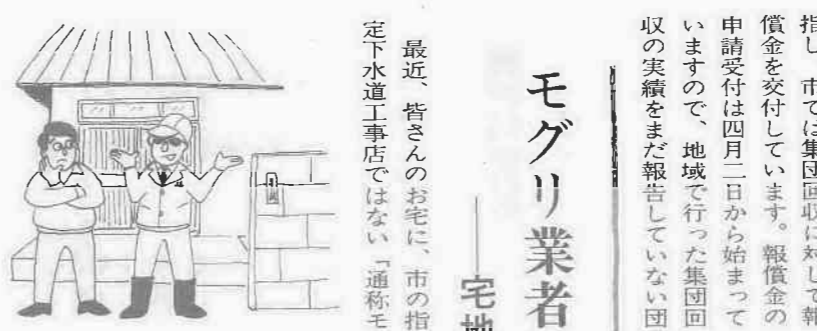 指し、市では集団回収に対して報
償金を交付しています。報償金の
申請受付は四月二日から始まって
いますので、地域で行った集団回
収の実績をまだ報告していない団
モグリ業者
──宅地
最近、皆さんのお宅に、市の指
定下水道工事店ではない「通称モ